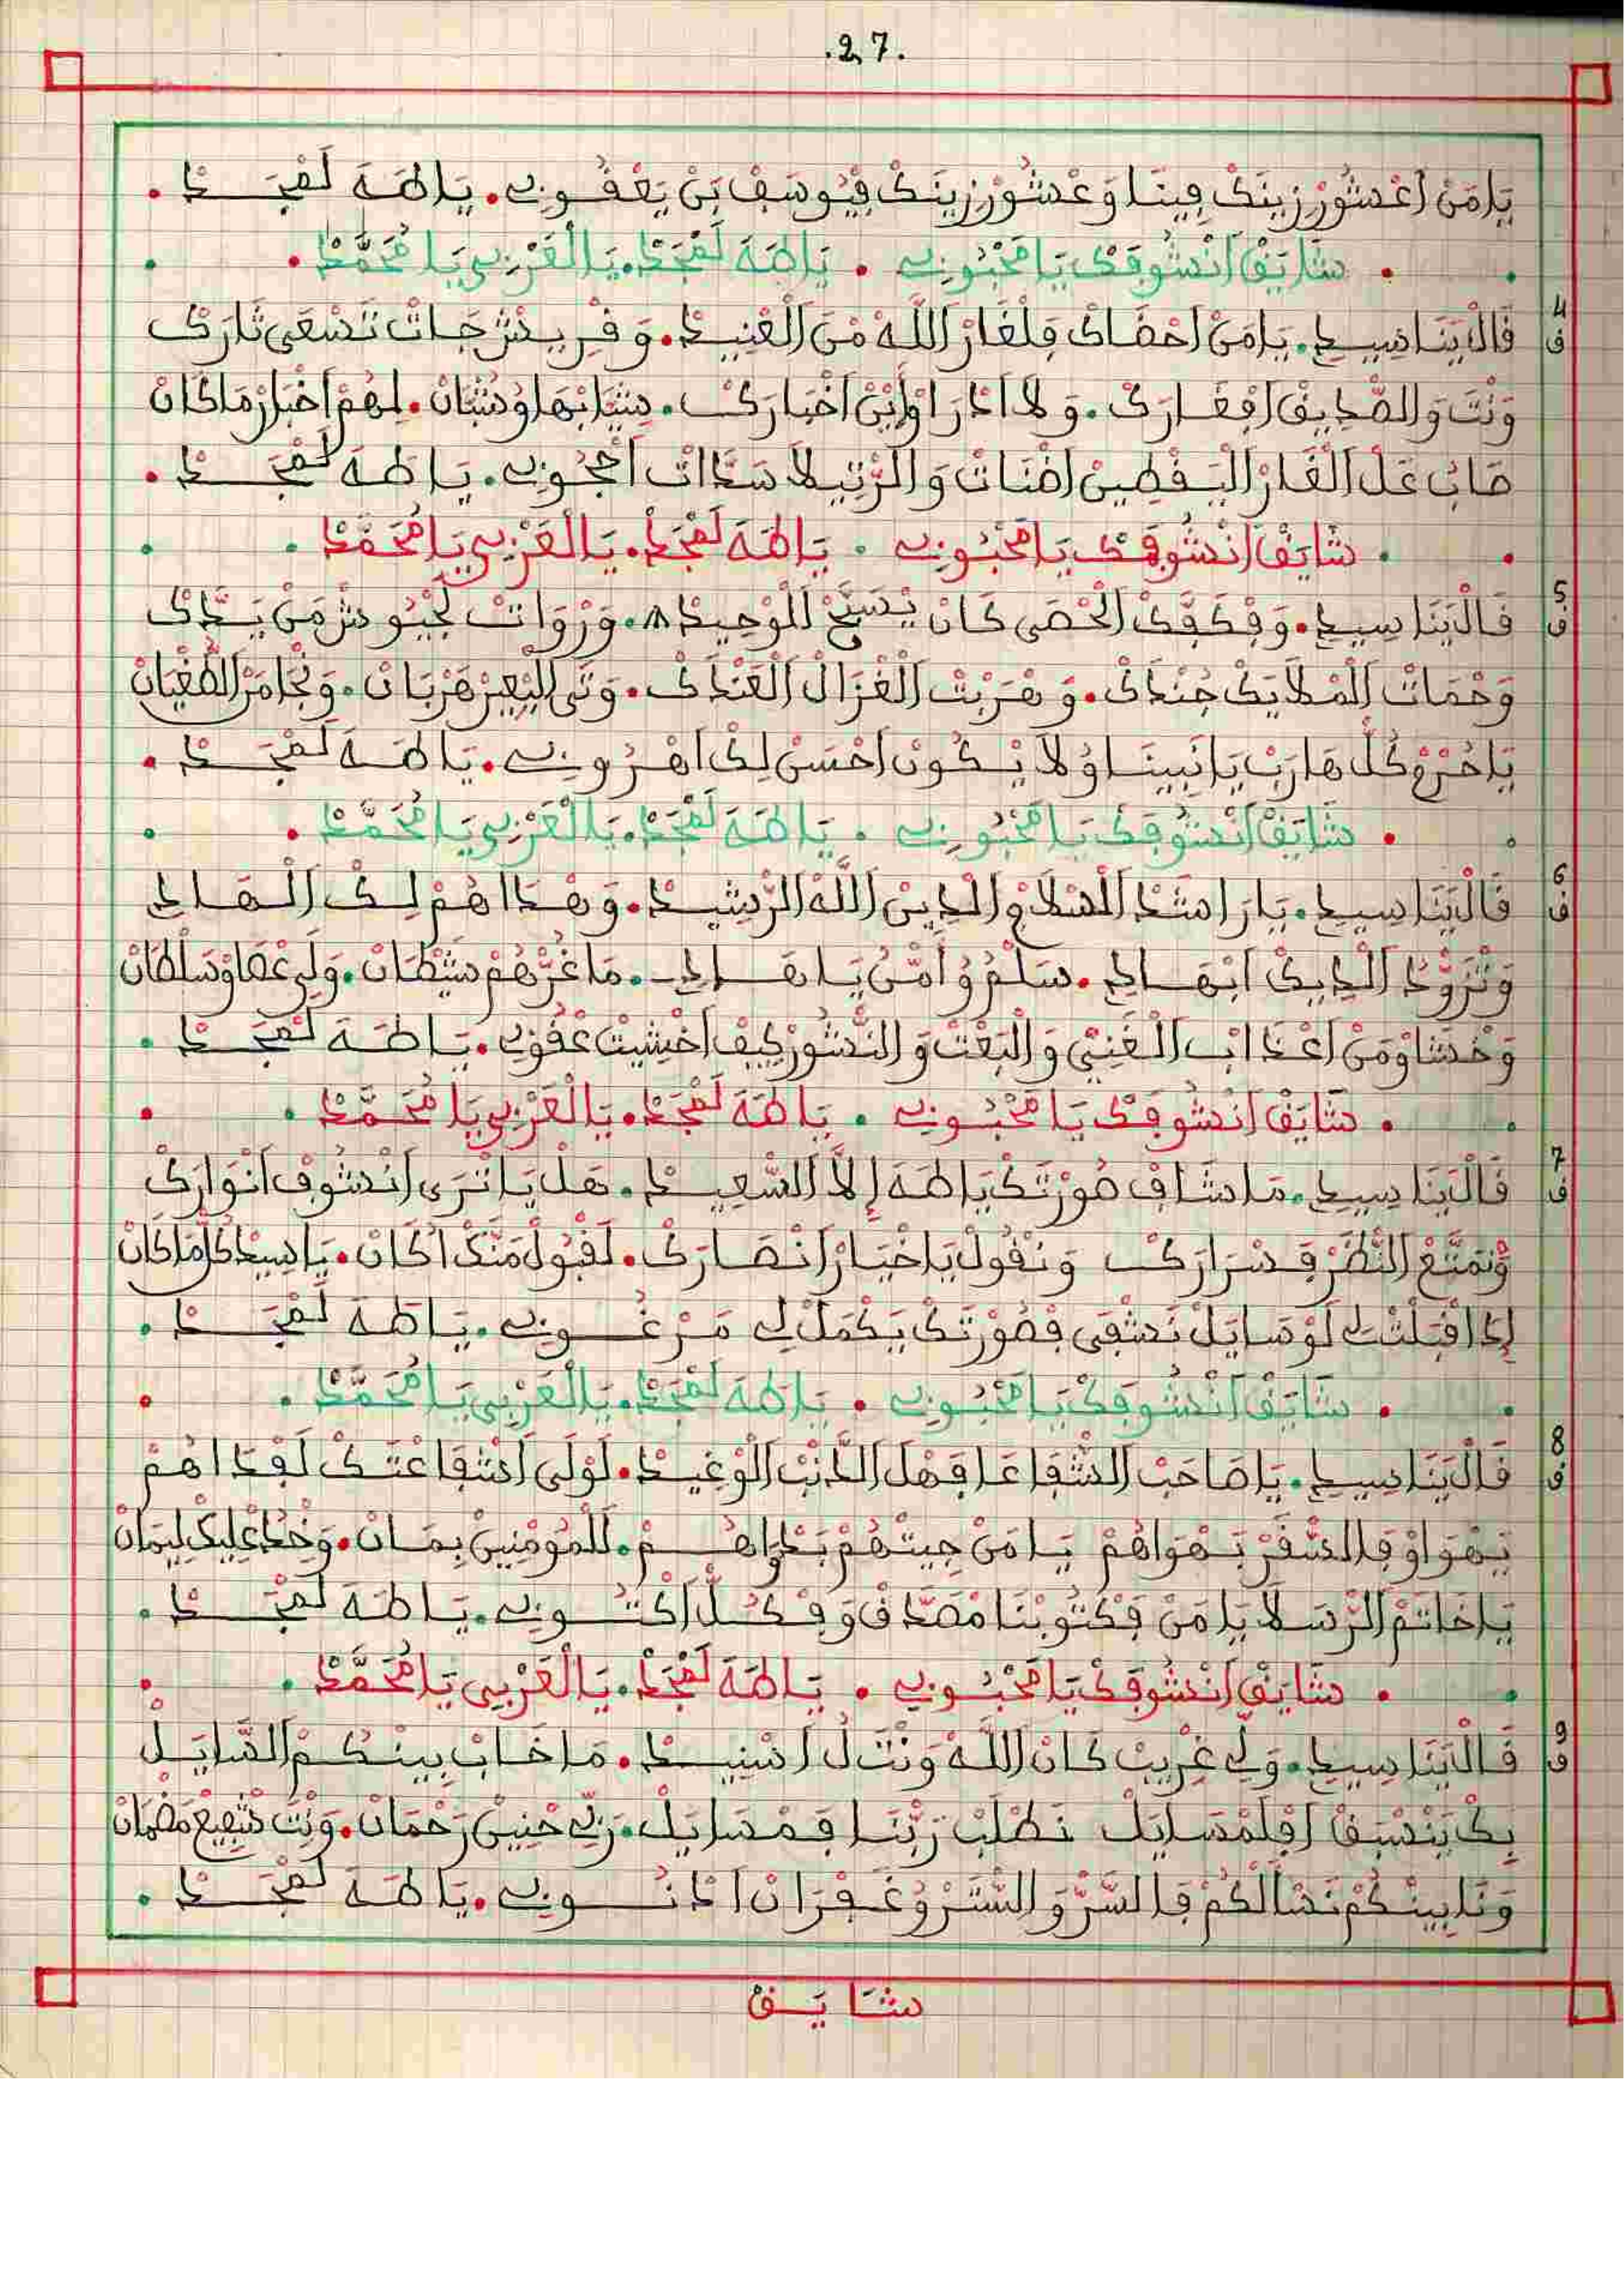 .27.
يَامَنْ اعْشُورْ زِينَكْ فِينَا وَعْشُورْ زِينَكْ فِيُوسَفْ بَنْ يَعْقُوبِ. يَا طَهَ لَمْجَدْ.
شَايَقْ انْشُوفَكْ يَا مَحْبُوبِ . يَا طَهَ لَمْجَدْ. يَا لْعَرْبِي يَا مُحَمَّدْ.
4 ف قَالْ يَنَا سِيدِ. يَامَنْ احْفَاكْ فِلْغَارْ اللَّهْ مْنَ الْعْنِيدْ. وَقْرِيشْ جَاتْ تَسْعَى ثَارَكْ
وَنْتَ وَالصّدِيقْ افْغَارَكْ. وَلاَ ادْرَاوْ ايْنْ اخْبَارَكْ. شَابْهَاوْ شَتَانْ. لِهُمْ اخْبَارْ مَا كَانْ
صَابُ عَلْ الْغَارْ الْيَقْطِينْ اضْنَاتْ وَالرّتِيلاَ سَدَّاتْ احْجُوبِ. يَا طَهَ لَمْجَدْ.
شَايَقْ انْشُوفَكْ يَا مَحْبُوبِ . يَا طَهَ لَمْجَدْ. يَا لْعَرْبِي يَا مُحَمَّدْ
5 ف قَالْ يَنَا سِيدِ. وَفْكَفَّكْ الْحْصَى كَانْ يْسَبَّحْ الْوْحِيدْ. وَرْوَاتْ لَجْيُوشْ مَنْ يَدَّكْ
وَحْمَاتْ الْمْلاَيَكْ جُنْدَكْ. وَهَرْبَتْ الْغْزَالْ الْعَنْدَكْ. وَتَى الْبْعِيرْ هَرْبَانْ. وَنْجَا مَنْ الطُّغْيَانْ
يَا حُرْمْ كُلّ هَارَبْ يَا نَبِينَا وْلاَ يْكُونْ احْسَنْ لِكْ اهْرُوبِ. يَا طَهَ لَمْجَدْ.
شَايَقْ انْشُوفَكْ يَا مَحْبُوبِ . يَا طَهَ لَمْجَدْ. يَا لْعَرْبِي يَا مُحَمَّدْ.
6 ف قَالْ يَنَا سِيدِ. يَا رَاشَدْ الْسْلاَمْ وَالْدِينْ اللَّهْ الرّشِيدْ. وَهْدَاهُمْ لِكْ الْهَادِ
وَتْزَوُّدْ الْدِيكْ ابْهَادِ. سَلْمُ وُامْنُ يَا هَادِ. مَا غُرّهُمْ شَيْطَانْ. وَلِي عْصَاوْ سَلْطَانْ
وَخْشَاوْ مَنْ اعْذَابْ الْغْنِي وَالْبَعْتْ وَالنّشُورْ كِيفْ اخْشِيتْ عْقُوبِ. يَا طَهَ لَمْجَدْ.
شَايَقْ انْشُوفَكْ يَا مَحْبُوبِ . يَا طَهَ لَمْجَدْ. يَا لْعَرْبِي يَا مُحَمَّدْ.
7 ف قَالْ يَنَا سِيدِ. مَا شَافْ صُورْتَكْ يَا طَهَ إِلاَّ السّعِيدْ. هَلْ يَا تْرَى انْشُوفْ انْوَارَكْ
وْنَمَتَّعْ النّظَرْ فِسْرَارَكْ وَنْقُولْ يَا خْيَارْ انْصَارَكْ. لَقْبُولْ مَنَّكْ اكَانْ. يَا سِيدْ كُلّ مَا كَانْ
إدَا اقْبَلْتْ لِي لَوْسَايَلْ نَشْفَى فْصُورْتَكْ يَكْمَلْ لِي مَرْغُوبِ. يَا طَهَ لَمْجَدْ.
شَايَقْ انْشُوفَكْ يَا مَحْبُوبِ . يَا طَهَ لَمْجَدْ. يَا لْعَرْبِي يَا مُحَمَّدْ.
8 ف قَالْ يَنَا سِيدِ. يَا صَاحَبْ الشّفَاعَا فَهْلَ الدّنْبْ الْوْغِيدْ. لَوْلَى اشْفَاعْتَكْ لَفْدَاهُمْ
يَهْوَاوْ فِالسّقَرْ بَهْوَاهُمْ يَا مَنْ جِيتْهُمْ بَدْوَاهُمْ. لَلْمُومْنِينْ بِمَانْ. وَخْدْ عْلِيكْ لِيمَانْ
يَا خَاتَمْ الرّسَلاَ يَا مَنْ فَكْتُوبْنَا مْصَدّقْ وَفْكُلّ اكْتُوبِ. يَا طَهَ لَمْجَدْ.
شَايَقْ انْشُوفَكْ يَا مَحْبُوبِ . يَا طَهَ لَمْجَدْ. يَا لْعَرْبِي يَا مُحَمَّدْ.
9 ف قَالْ يَنَا سِيدِ. وَلِي غْرِيبْ كَانْ اللَّهْ وَنْتَ لُ اسْنِيدْ. مَا خَابْ بِينْكُمْ السّايَلْ
بِكْ يَنْسْقْ افِلَمْسَايَلْ نَطْلَبْ رَبّنَا فَمْسَايَلْ. رَبِّي حْنِينْ رَحْمَانْ. وَنْتَ شْفِيعْ مَضْمَانْ
وَنَا بِينْكُمْ نَسَالْكُمْ فَالسّرّ وَالسّتَرْ وُغَفْرَانْ ادْنُوبِ. يَا طَهَ لَمْجَدْ.
شَايَقْ